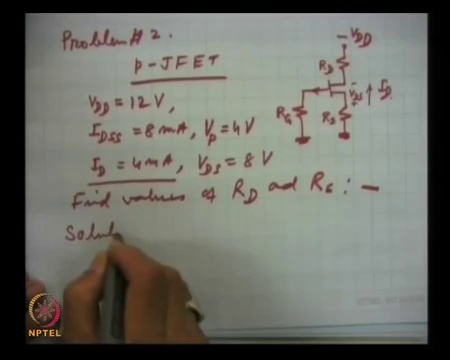 Problem # 2.
P-JFET
VDD = 12 V,
IDSS = 8 mA, Vp = 4 V
ID = 4 mA, VDS = 8 V
Find values of RD ad Rs : —
Solut
- VDD
RD
VDS
ID
RG
Rs
NPTEL